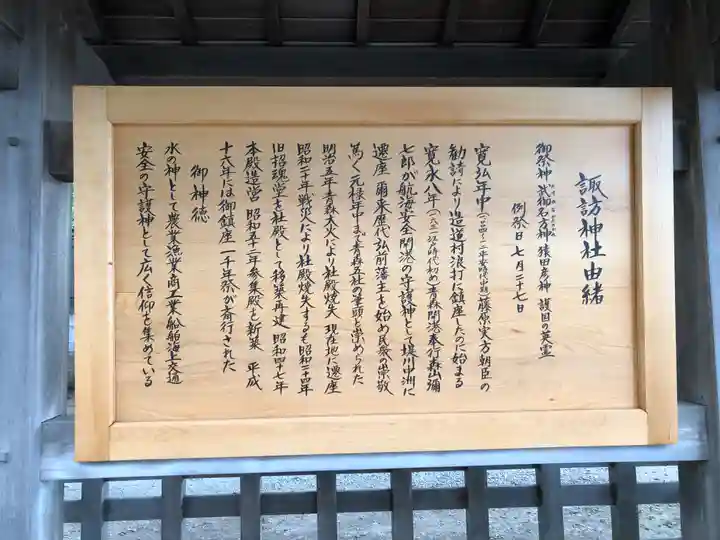 諏訪神社由緒
御祭神 武御名方神 猿田彦神 護国の英霊
例祭日 七月二十七日
寛弘年中(一〇〇四~一二平安時代中期)藤原実方朝臣の
勧請により造道村浪打に鎮座したのに始まる
寛永八年(一六三一江戸時代初め)青森開港奉行森山彌
七郎が航海安全開港の守護神として堤川中洲に
遷座 爾来歴代弘前藩主を始め民衆の崇敬
篤く元禄年中まで青森五社の筆頭と崇められた
明治五年青森大火により社殿焼失 現在地に遷座
昭和二十年戦災により社殿焼失するも昭和二十四年
旧招魂堂を社殿として移築再建 昭和四十七年
本殿造営 昭和五十二年参集殿を新築 平成
十六年には御鎮座一千年祭が斎行された
御神徳
水の神として農業漁業商工業船舶海上交通
安全の守護神として広く信仰を集めている